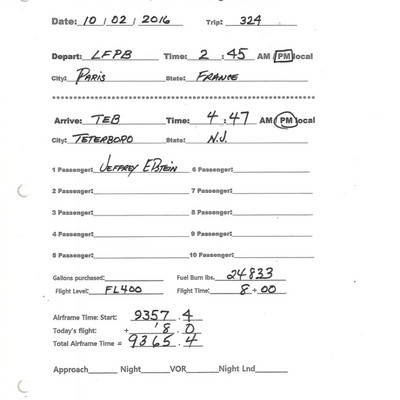 Date: 10 / 02 / 2016 Trip: 324
Depart: LFPB Time: 2 : 45 AM PM local
City: PARIS State: FRANCE
************************************************************
Arrive: TEB Time: 4 : 47 AM PM local
City: TETERBORO State: N.J.
1 Passenger: JEFFREY EPSTEIN 6 Passenger:
2 Passenger: 7 Passenger:
3 Passenger: 8 Passenger:
4 Passenger: 9 Passenger:
5 Passenger: 10 Passenger:
Gallons purchased: Fuel Burn lbs. 24833
Flight Level: FL400 Flight Time: 8 + 00
Airframe Time: Start: 9357 . 4
Today's flight: + 8 . 0
Total Airframe Time = 9365 . 4
Approach Night VOR Night Lnd